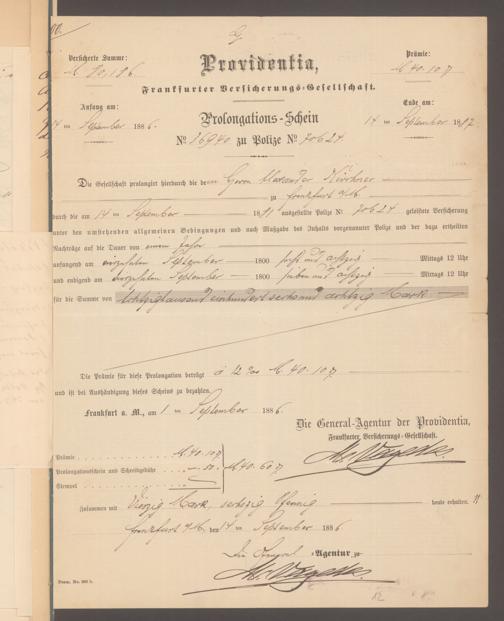 Versicherte Summe:
Prämie:
Providentia,
M 40.10
Frankfurter Versicherungs-Gesellschaft.
Anfang am:
Prolongations-Schein
Ende am:
September 1886.
14 September 1887.
No 26940 zu Polize No 70624
Die Gesellschaft prolongirt hierdurch die dem Herrn Alexander
zu Frankfurt a/M.
durch die am 14 September 1881 ausgestellte Polize No 70624 geleistete Versicherung
unter den umstehenden allgemeinen Bedingungen und nach Maßgabe des Inhalts vorgenannter Polize und der dazu ertheilten
Nachträge auf die Dauer von einem Jahr
anfangend am vierzehnten September 1800 sechs und achtzig Mittags 12 Uhr
und endigend am vierzehnten September 1800 sieben und achtzig Mittags 12 Uhr
für die Summe von Mark
Die Prämie für diese Prolongation beträgt à M. 40.10
und ist bei Aushändigung dieses Scheins zu bezahlen.
Frankfurt a. M., am 1 September 1886.
Die General-Agentur der Providentia,
Frankfurter Versicherungs-Gesellschaft.
Prämie M. 40.10
Prolongationsschein und Schreibgebühr .50 M. 40.60
Stempel
Zusammen mit Vierzig Mark, sechzig Pfennig heute erhalten.
Frankfurt a/M. den 14 September 1886
Die General-Agentur zu